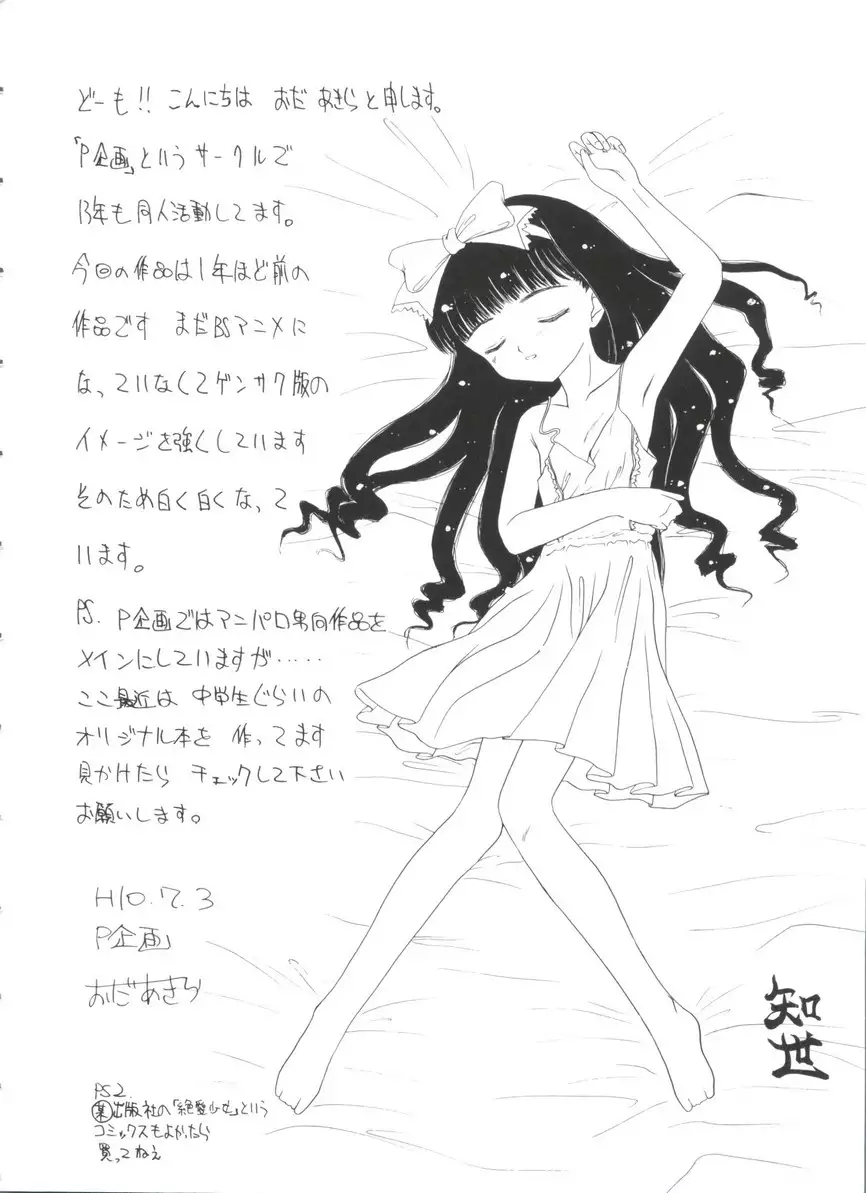 どーも!! こんにちは おだ あきらと申します。
「P企画」というサークルで
13年も同人活動してます。
今回の作品は1年ほど前の
作品です まだBSアニメに
なっていなくてゲンサク版の
イメージを強くしています
そのため白く白くなって
います。
PS. P企画ではアニパロ男向作品を
メインにしていますが……
ここ最近は 中学生ぐらいの
オリジナル本を 作ってます
見かけたら チェックして下さい
お願いします。
H10.7.3
P企画
おだあきら
知世
PS2.
㊭出版社の「絶愛少女」という
コミックスもよかったら
買ってねぇ